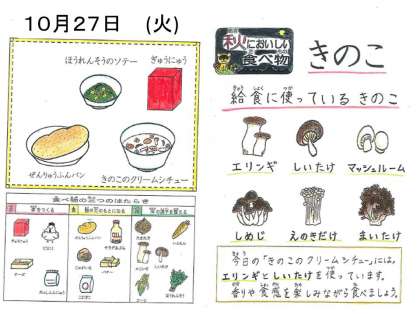 10月27日 (火)
ほうれんそうのソテー
ぎゅうにゅう
ぜんりゅうふんパン
きのこのクリームシチュー
秋においしい
食べ物
きのこ
給食に使っている きのこ
エリンギ
しいたけ
マッシュルーム
しめじ
えのきだけ
まいたけ
今日の「きのこのクリームシチュー」には、
エリンギとしいたけを使っています。
香りや食感を楽しみながら食べましょう。
食べ物の三つのはたらき